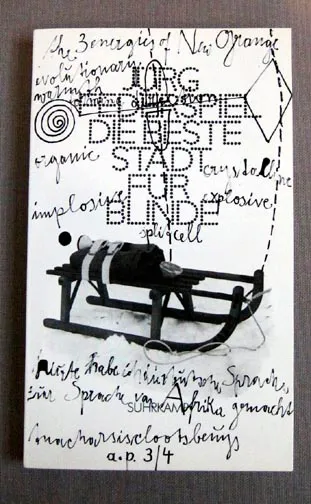 the 3 energies of New Orange
evolutionary
warmth
JÜRG
LEDERSPIEL
DIE BESTE
STADT
FÜR
BLINDE
organic
crystalline
implosive
explosive
splitcell
Heute habe ich die deutsche Sprache
zur Sprache von Afrika gemacht
SUHRKAMP
a.p. 3/4